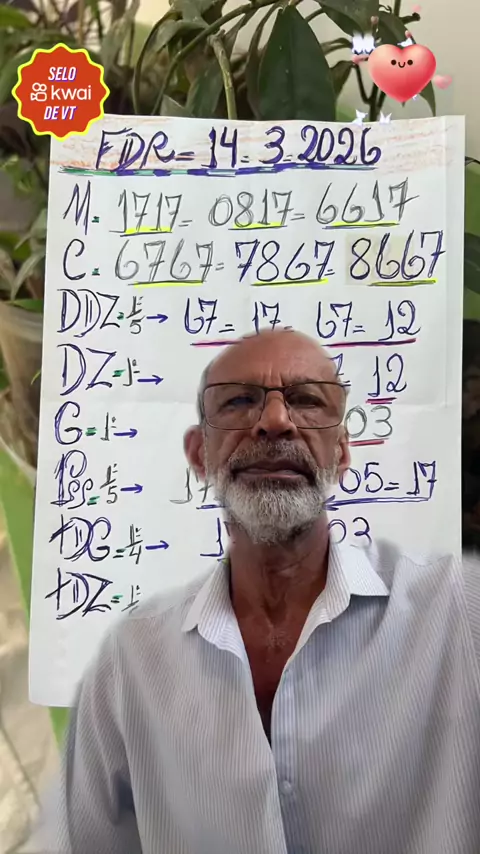 SELO
kwai
DE VT
FDR = 14 = 3 = 2026
M = 1717 = 0817 = 6617
C = 6767 = 7867 = 8667
DDZ = 1/5 → 67 = 17 67 = 12
DZ = 1 → 12
G = 1 → 03
1/5 → 05 = 17
DG = 1/4 → 03
DZ = 1